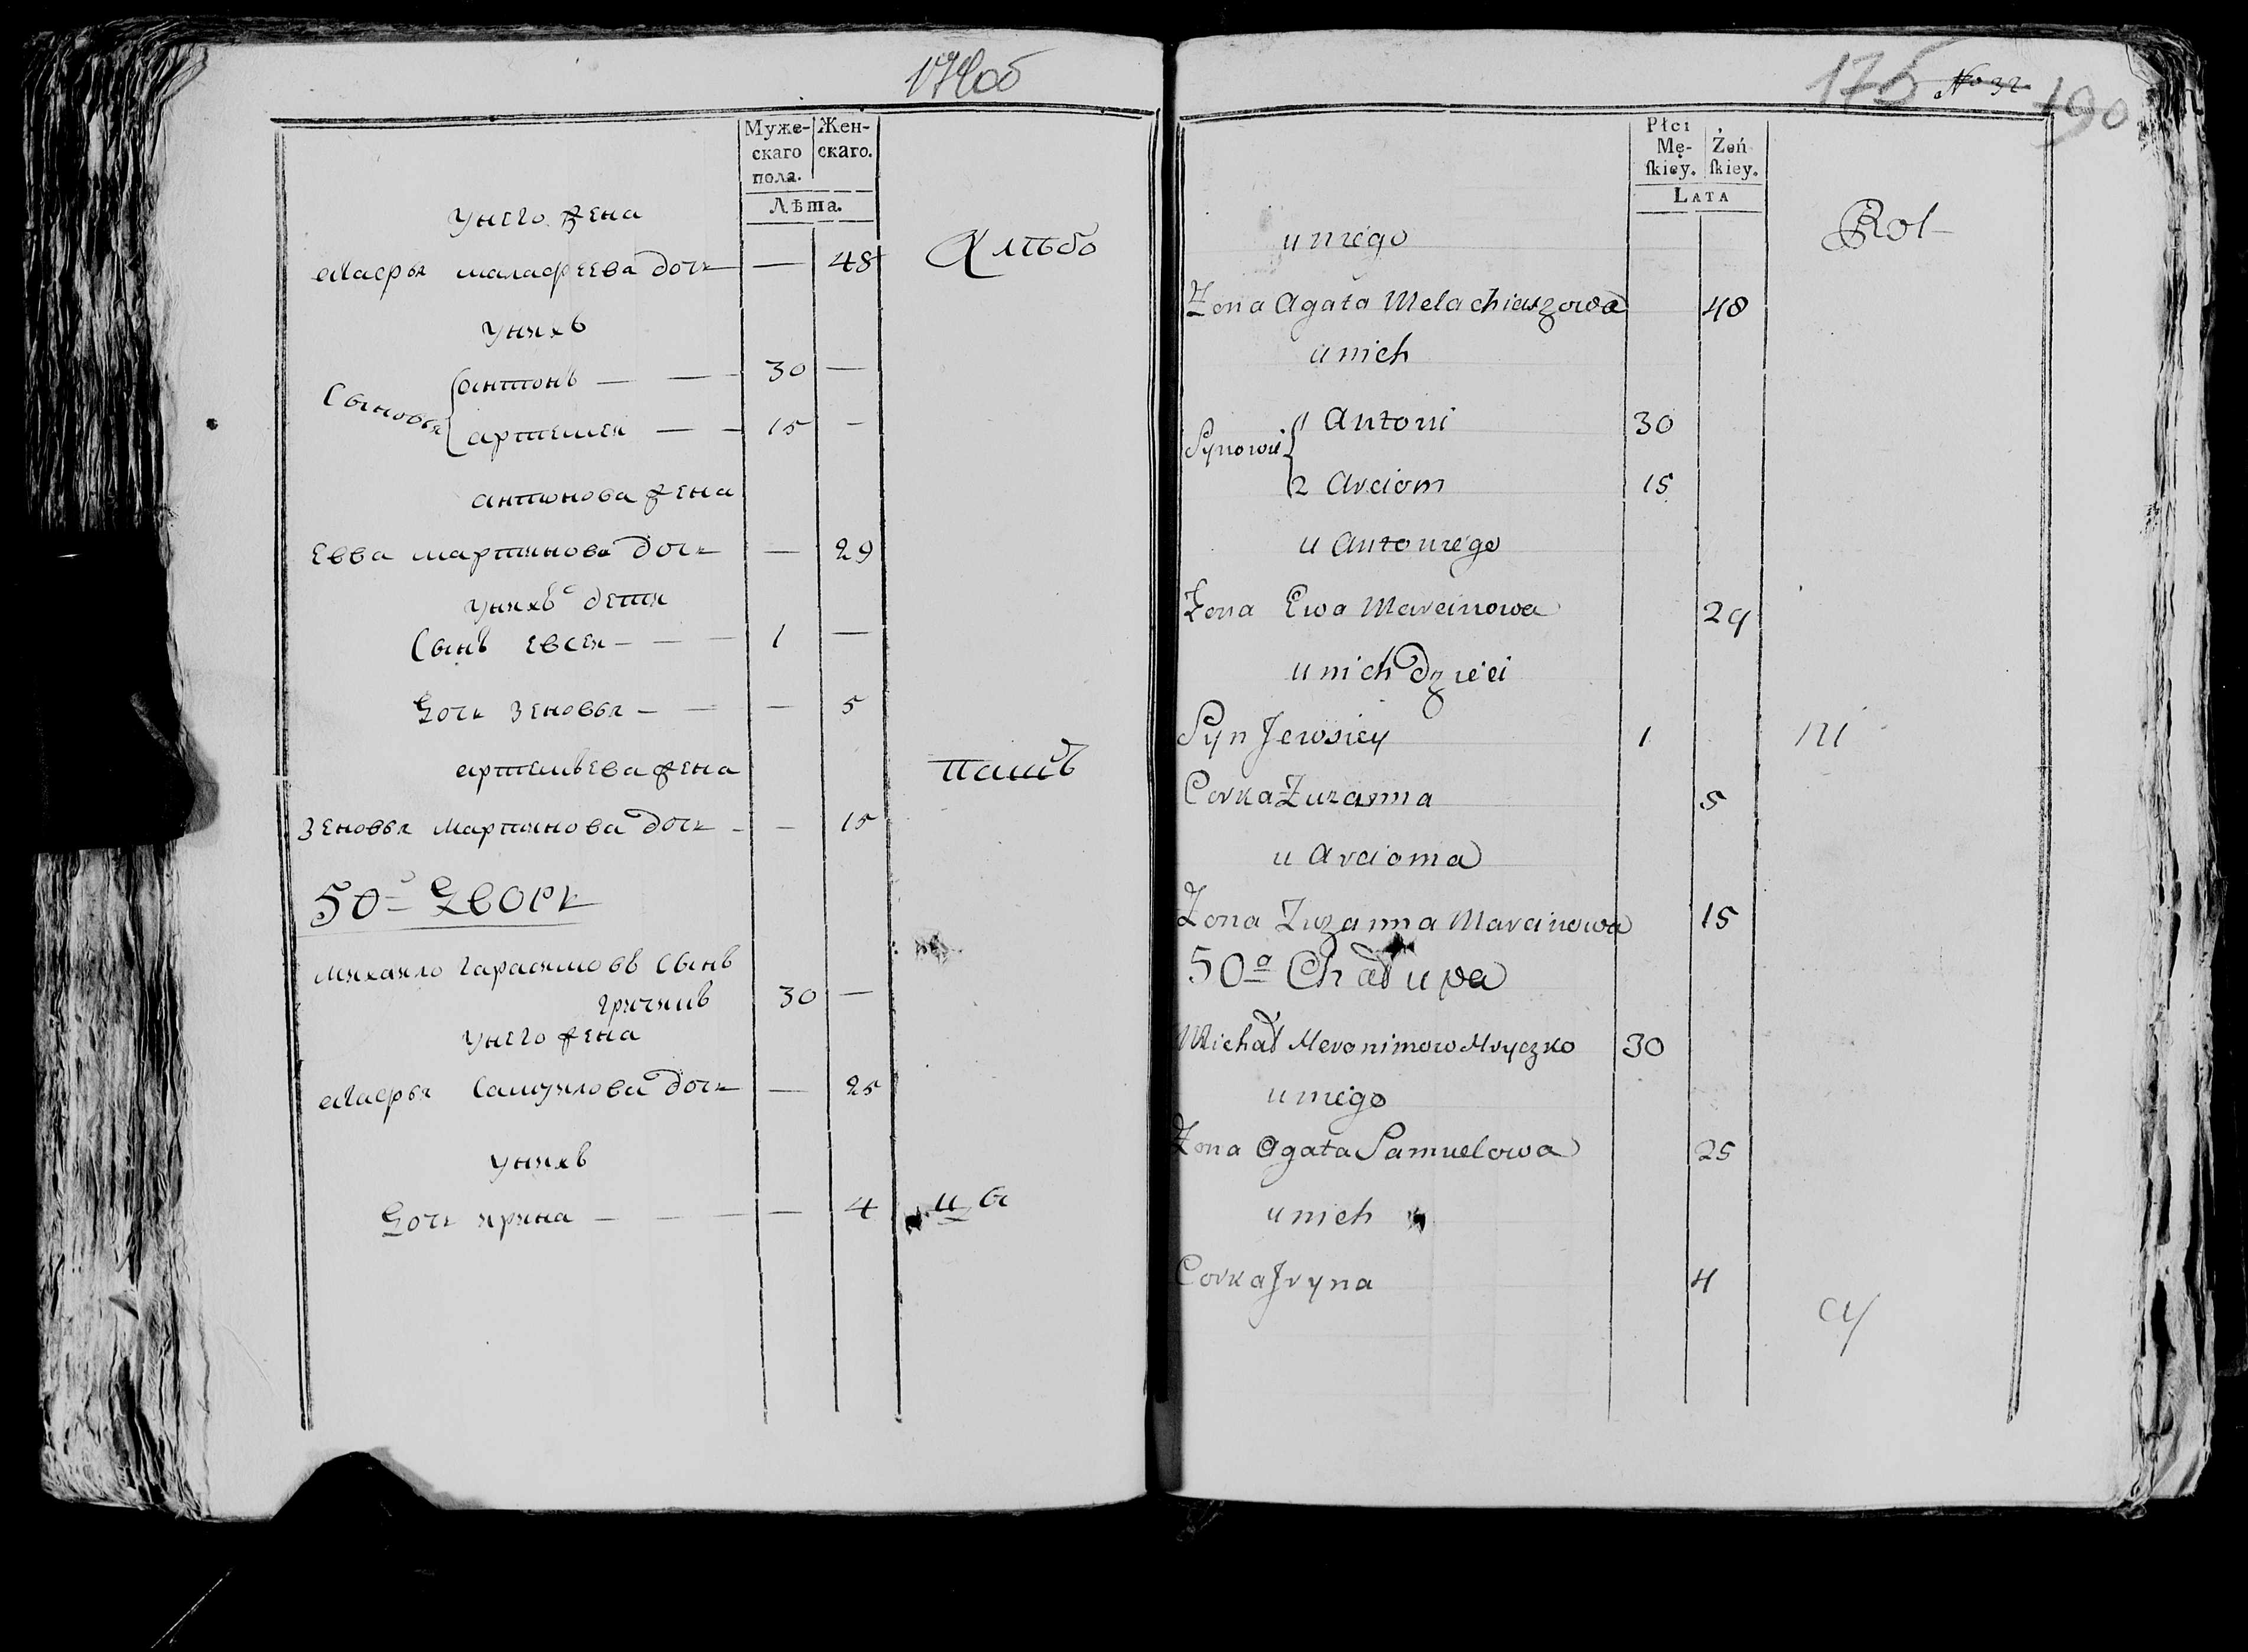 174об
Муже-
скаго
пола.
Жен-
скаго.
Лѣта.
унего жена
Магрья малафеева дочь — 48
Хлѣбо
унихъ
Сыновья
антонъ — — 30 —
артемеи — — 15 —
антонова жена
Евва мартинова дочь — 29
унихъ дети
Сынъ евсеи — — — 1 —
Дочь зеновья — — — 5
артемьева жена
пашъ
зеновья мартинова дочь - — 15
50й Дворъ
михаило гарасимовъ сынъ
30 —
унего жена
Магрья самуилова дочь — 25
унихъ
Дочь ирина — — — — 4
цы
175 No 32 190
Płci
Mę-
ſkiey.
Żeń
ſkiey.
LATA
Rol
u niego
Zona Agata Melachiaszowa 48
u nich
Synowie
1 Antoni 30
2 Arciom 15
u Antoniego
Zona Ewa Marcinowa 29
u nich dzieci
Syn Jewsiey 1
ni
Corka Zuzanna 5
u Arcioma
Zona Zuzanna Marcinowa 15
50a Chałupa
Michał Heronimow Hryczko 30
u niego
Zona Agata Samuelowa 25
u nich
Corka Jryna 4
cy